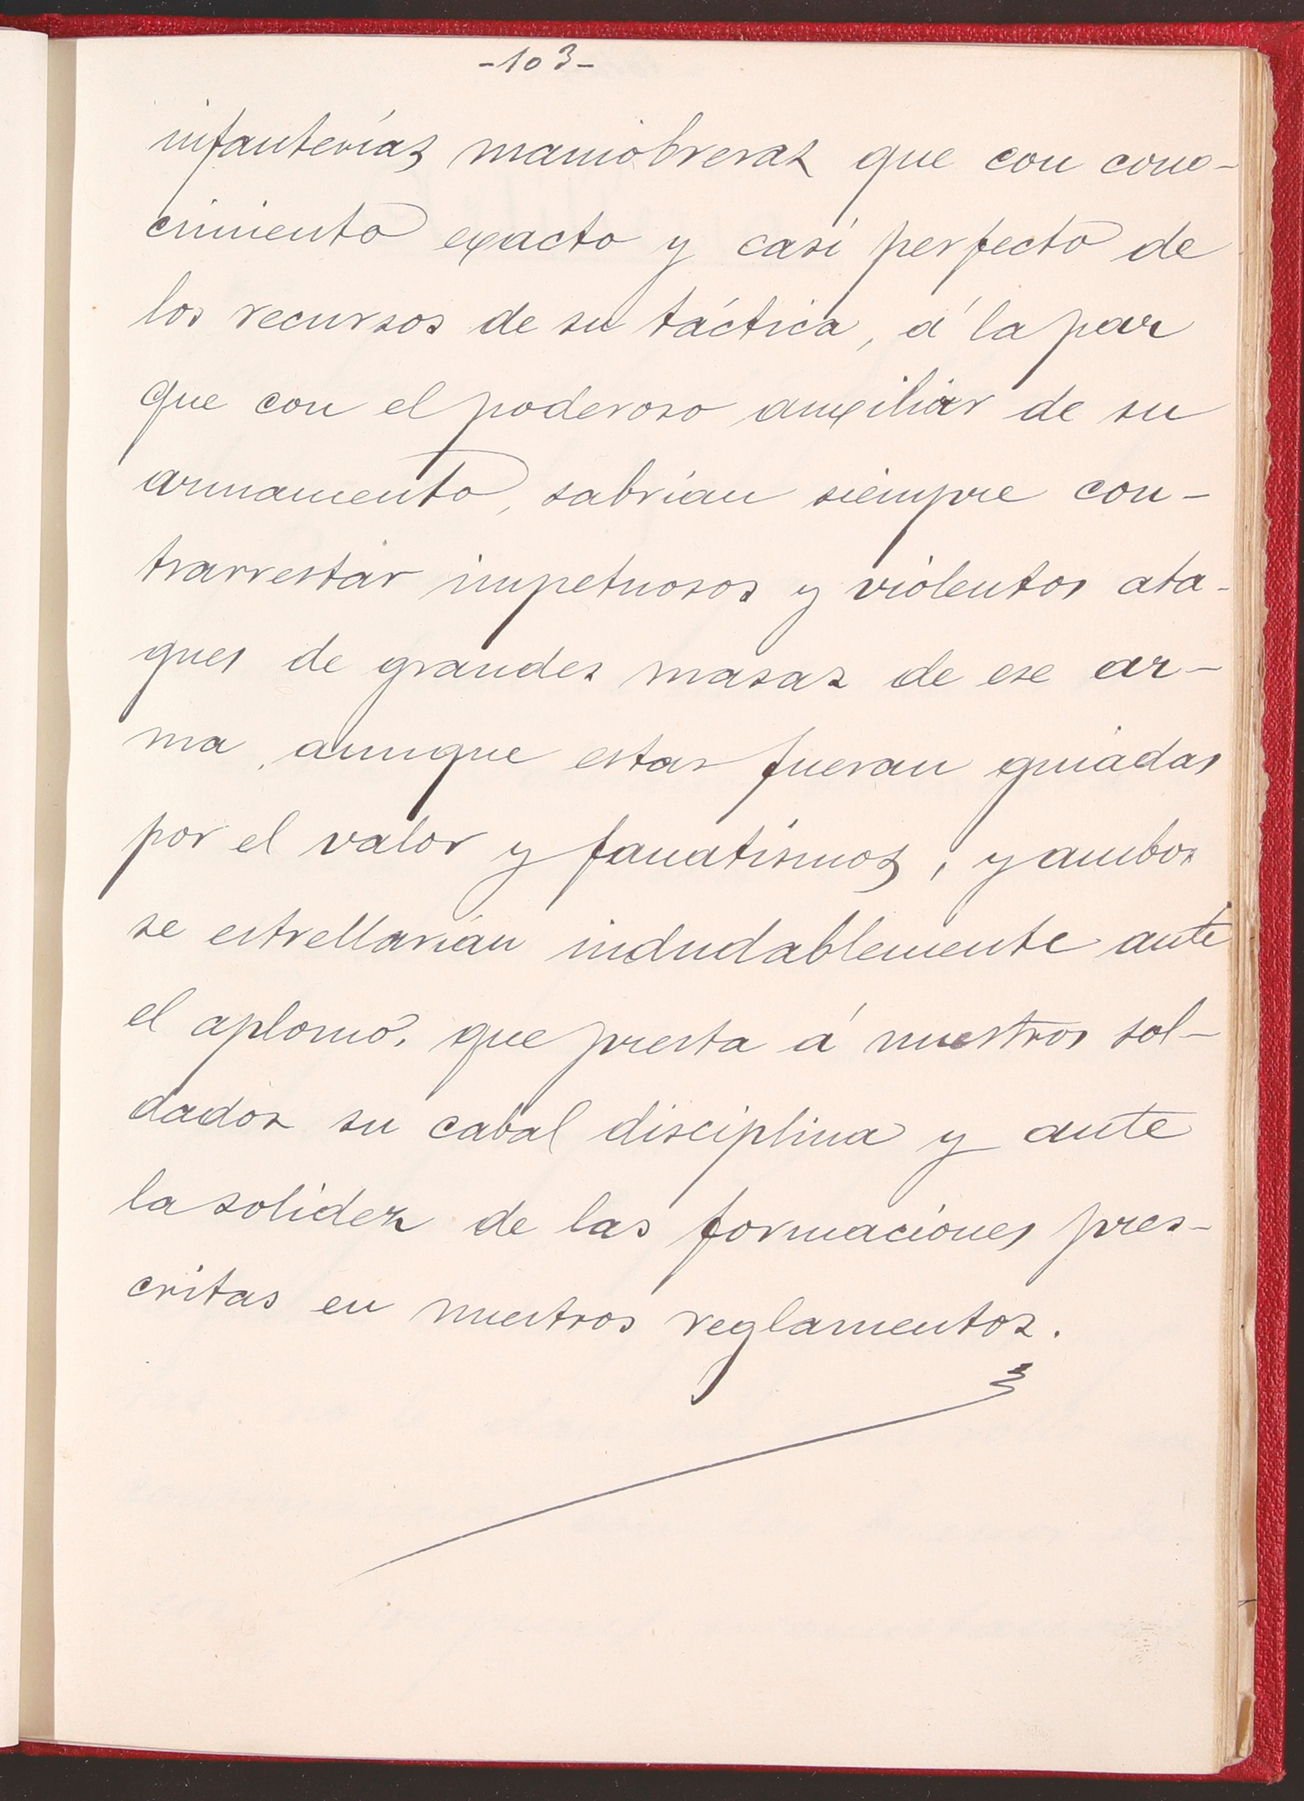 -103-
infanterías maniobreras que con cono-
cimiento exacto y casi perfecto de
los recursos de su táctica, á la par
que con el poderoso auxiliar de su
armamento, sabrían siempre con-
trarrestar impetuosos y violentos ata-
ques de grandes masas de ese ar-
ma, aunque estas fueran guiadas
por el valor y fanatismos, y ambos
se estrellarían indudablemente ante
el aplomo, que presta á nuestros sol-
dados su cabal disciplina y ante
la solidez de las formaciones pres-
critas en nuestros reglamentos.